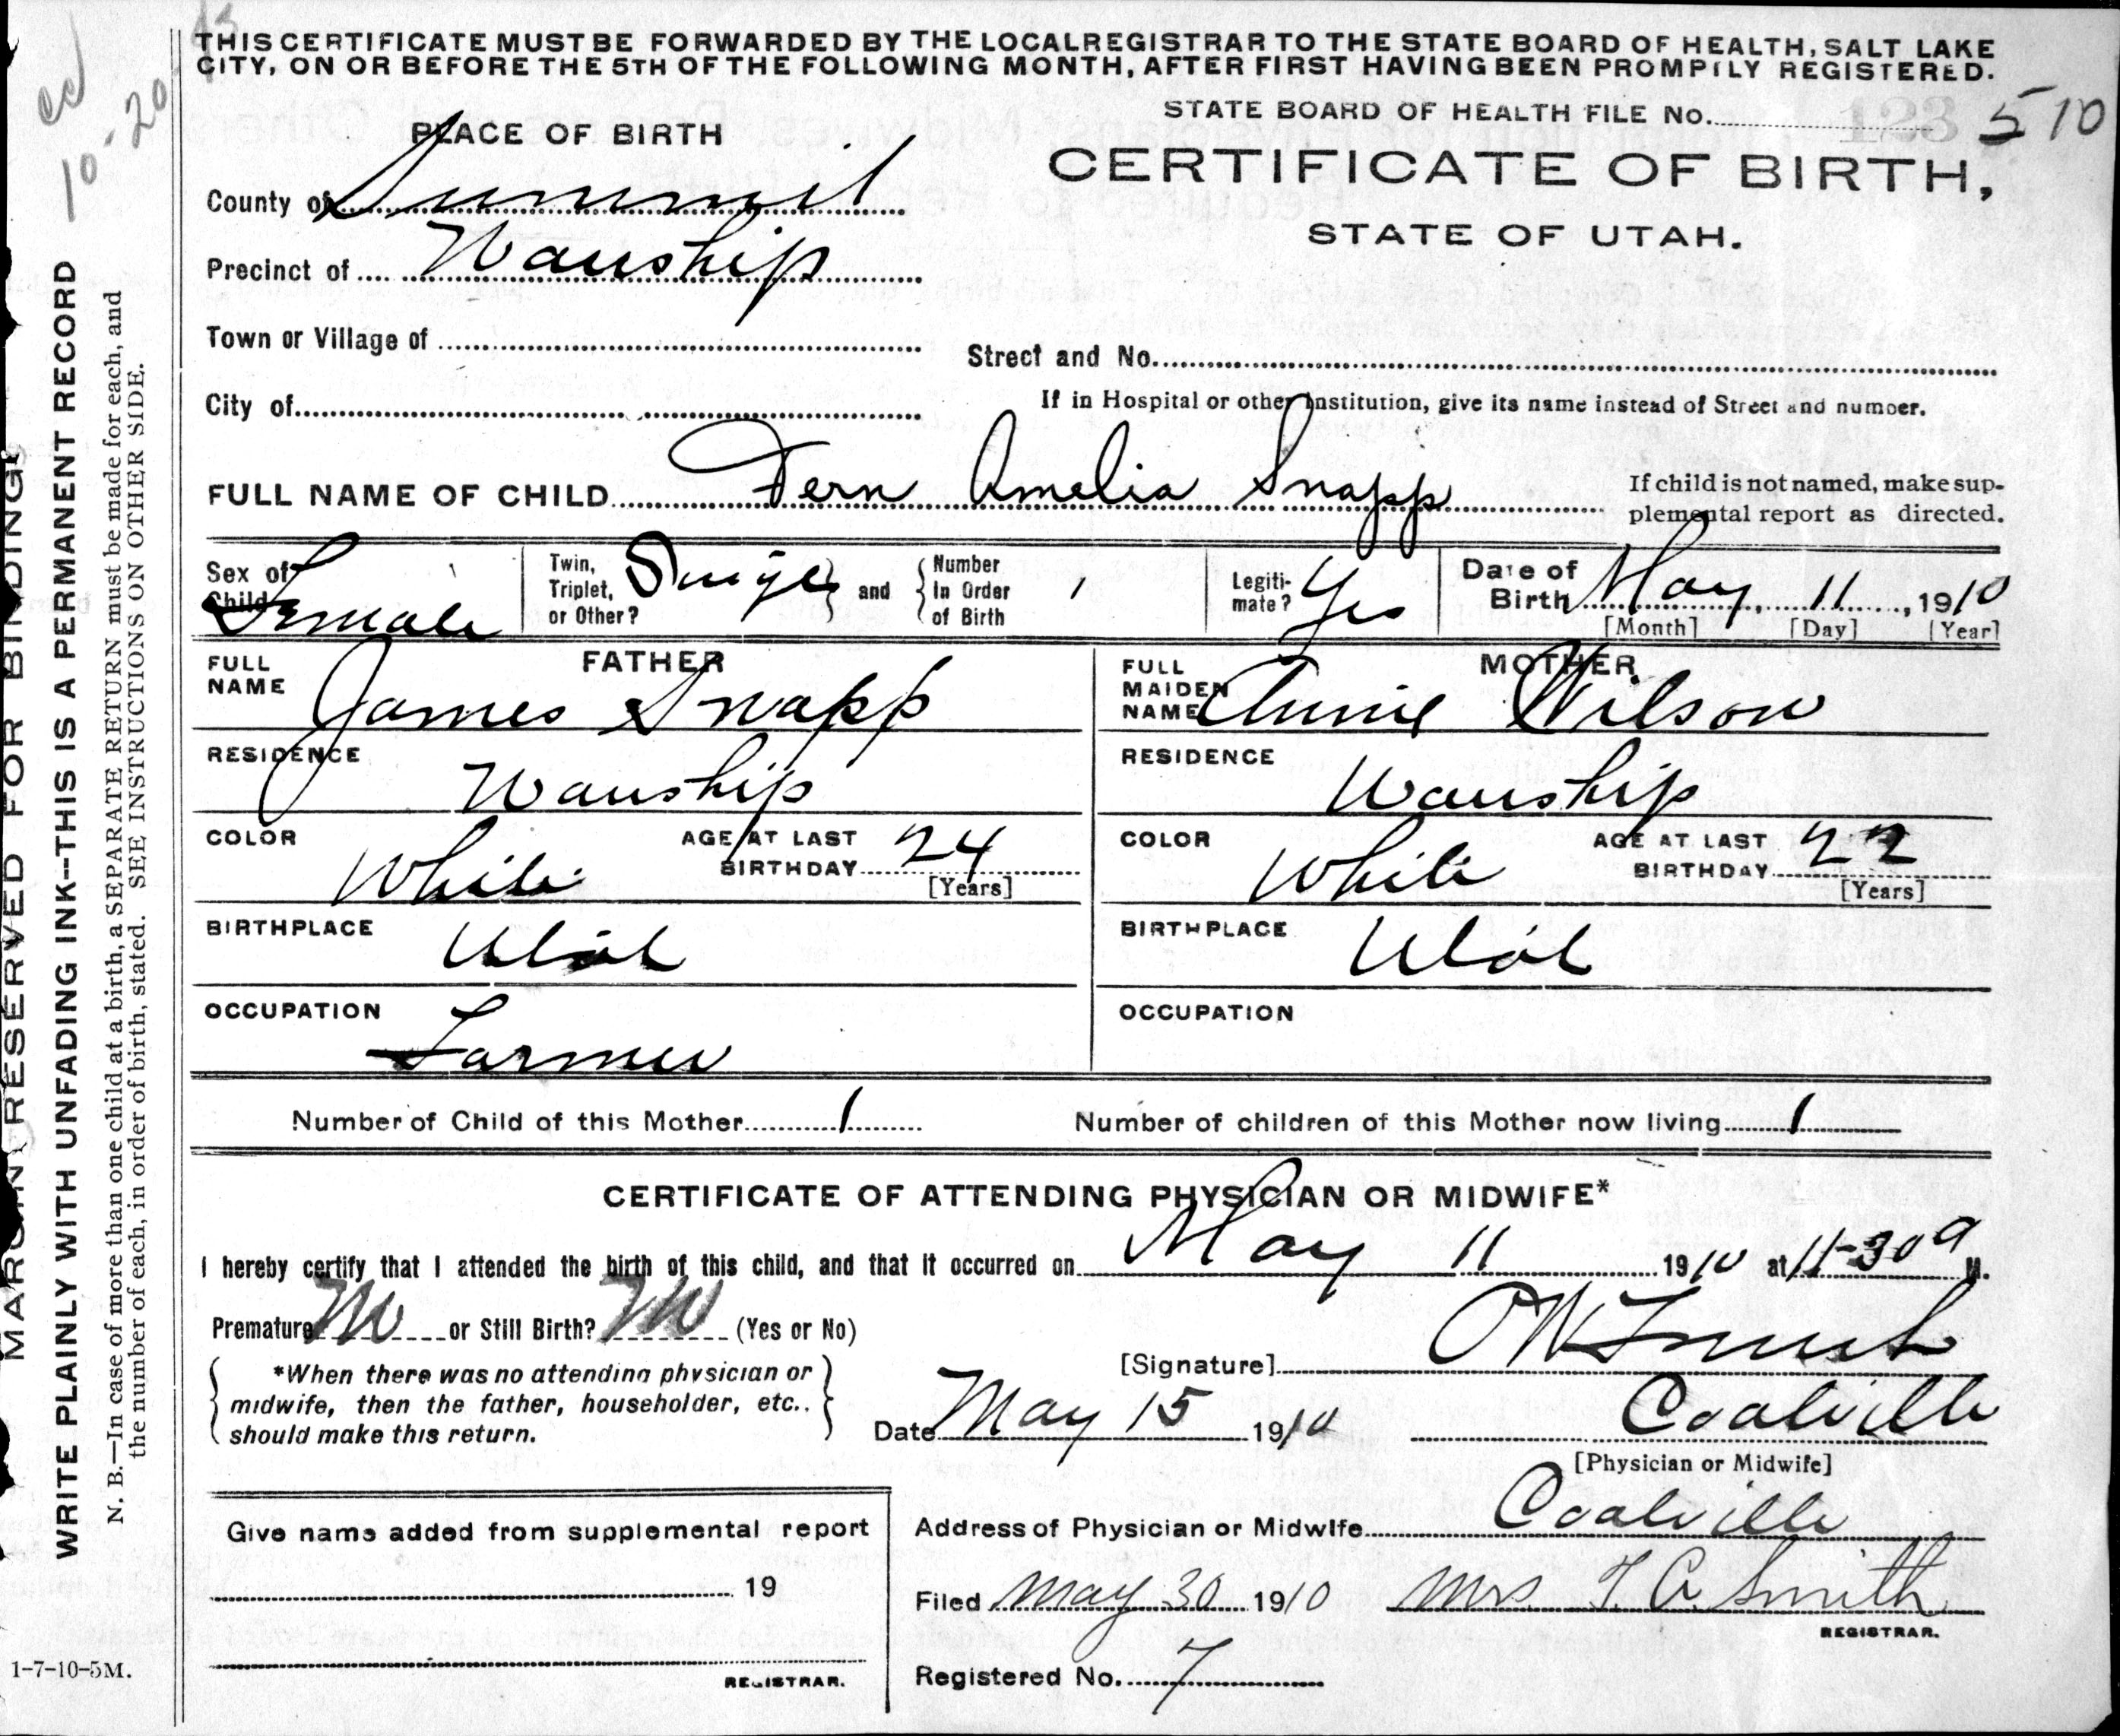 THIS CERTIFICATE MUST BE FORWARDED BY THE LOCAL REGISTRAR TO THE STATE BOARD OF HEALTH, SALT LAKE
CITY, ON OR BEFORE THE 5TH OF THE FOLLOWING MONTH, AFTER FIRST HAVING BEEN PROMPTLY REGISTERED.
STATE BOARD OF HEALTH FILE No. 123 510
PLACE OF BIRTH
CERTIFICATE OF BIRTH,
STATE OF UTAH.
County of Summit
Precinct of Wanship
Town or Village of
Street and No.
City of
If in Hospital or other Institution, give its name instead of Street and number.
FULL NAME OF CHILD Fern Amelia Snapp
If child is not named, make sup-
plemental report as directed.
Sex of Child Female
Twin, Triplet, or Other? Single and Number In Order of Birth 1
Legiti-
mate? Yes
Date of Birth May, 11, 1910
[Month] [Day] [Year]
FATHER
FULL NAME James Snapp
RESIDENCE Wanship
COLOR White AGE AT LAST BIRTHDAY 24
[Years]
BIRTHPLACE Utah
OCCUPATION Farmer
MOTHER
FULL MAIDEN NAME Annie Wilson
RESIDENCE Wanship
COLOR White AGE AT LAST BIRTHDAY 22
[Years]
BIRTHPLACE Utah
OCCUPATION
Number of Child of this Mother 1 Number of children of this Mother now living 1
CERTIFICATE OF ATTENDING PHYSICIAN OR MIDWIFE*
I hereby certify that I attended the birth of this child, and that it occurred on May 11 1910 at 11-30 a M.
Premature No or Still Birth? No (Yes or No)
*When there was no attending physician or
midwife, then the father, householder, etc.,
should make this return.
[Signature]
Date May 15 1910 Coalville
[Physician or Midwife]
Give name added from supplemental report
19
REGISTRAR.
Address of Physician or Midwife Coalville
Filed May 30 1910 Mrs T A Smith
REGISTRAR.
Registered No. 7
1-7-10-5M.
MARGIN RESERVED FOR BINDING
WRITE PLAINLY WITH UNFADING INK--THIS IS A PERMANENT RECORD
N. B.—In case of more than one child at a birth, a SEPARATE RETURN must be made for each, and
the number of each, in order of birth, stated. SEE INSTRUCTIONS ON OTHER SIDE.
10-20